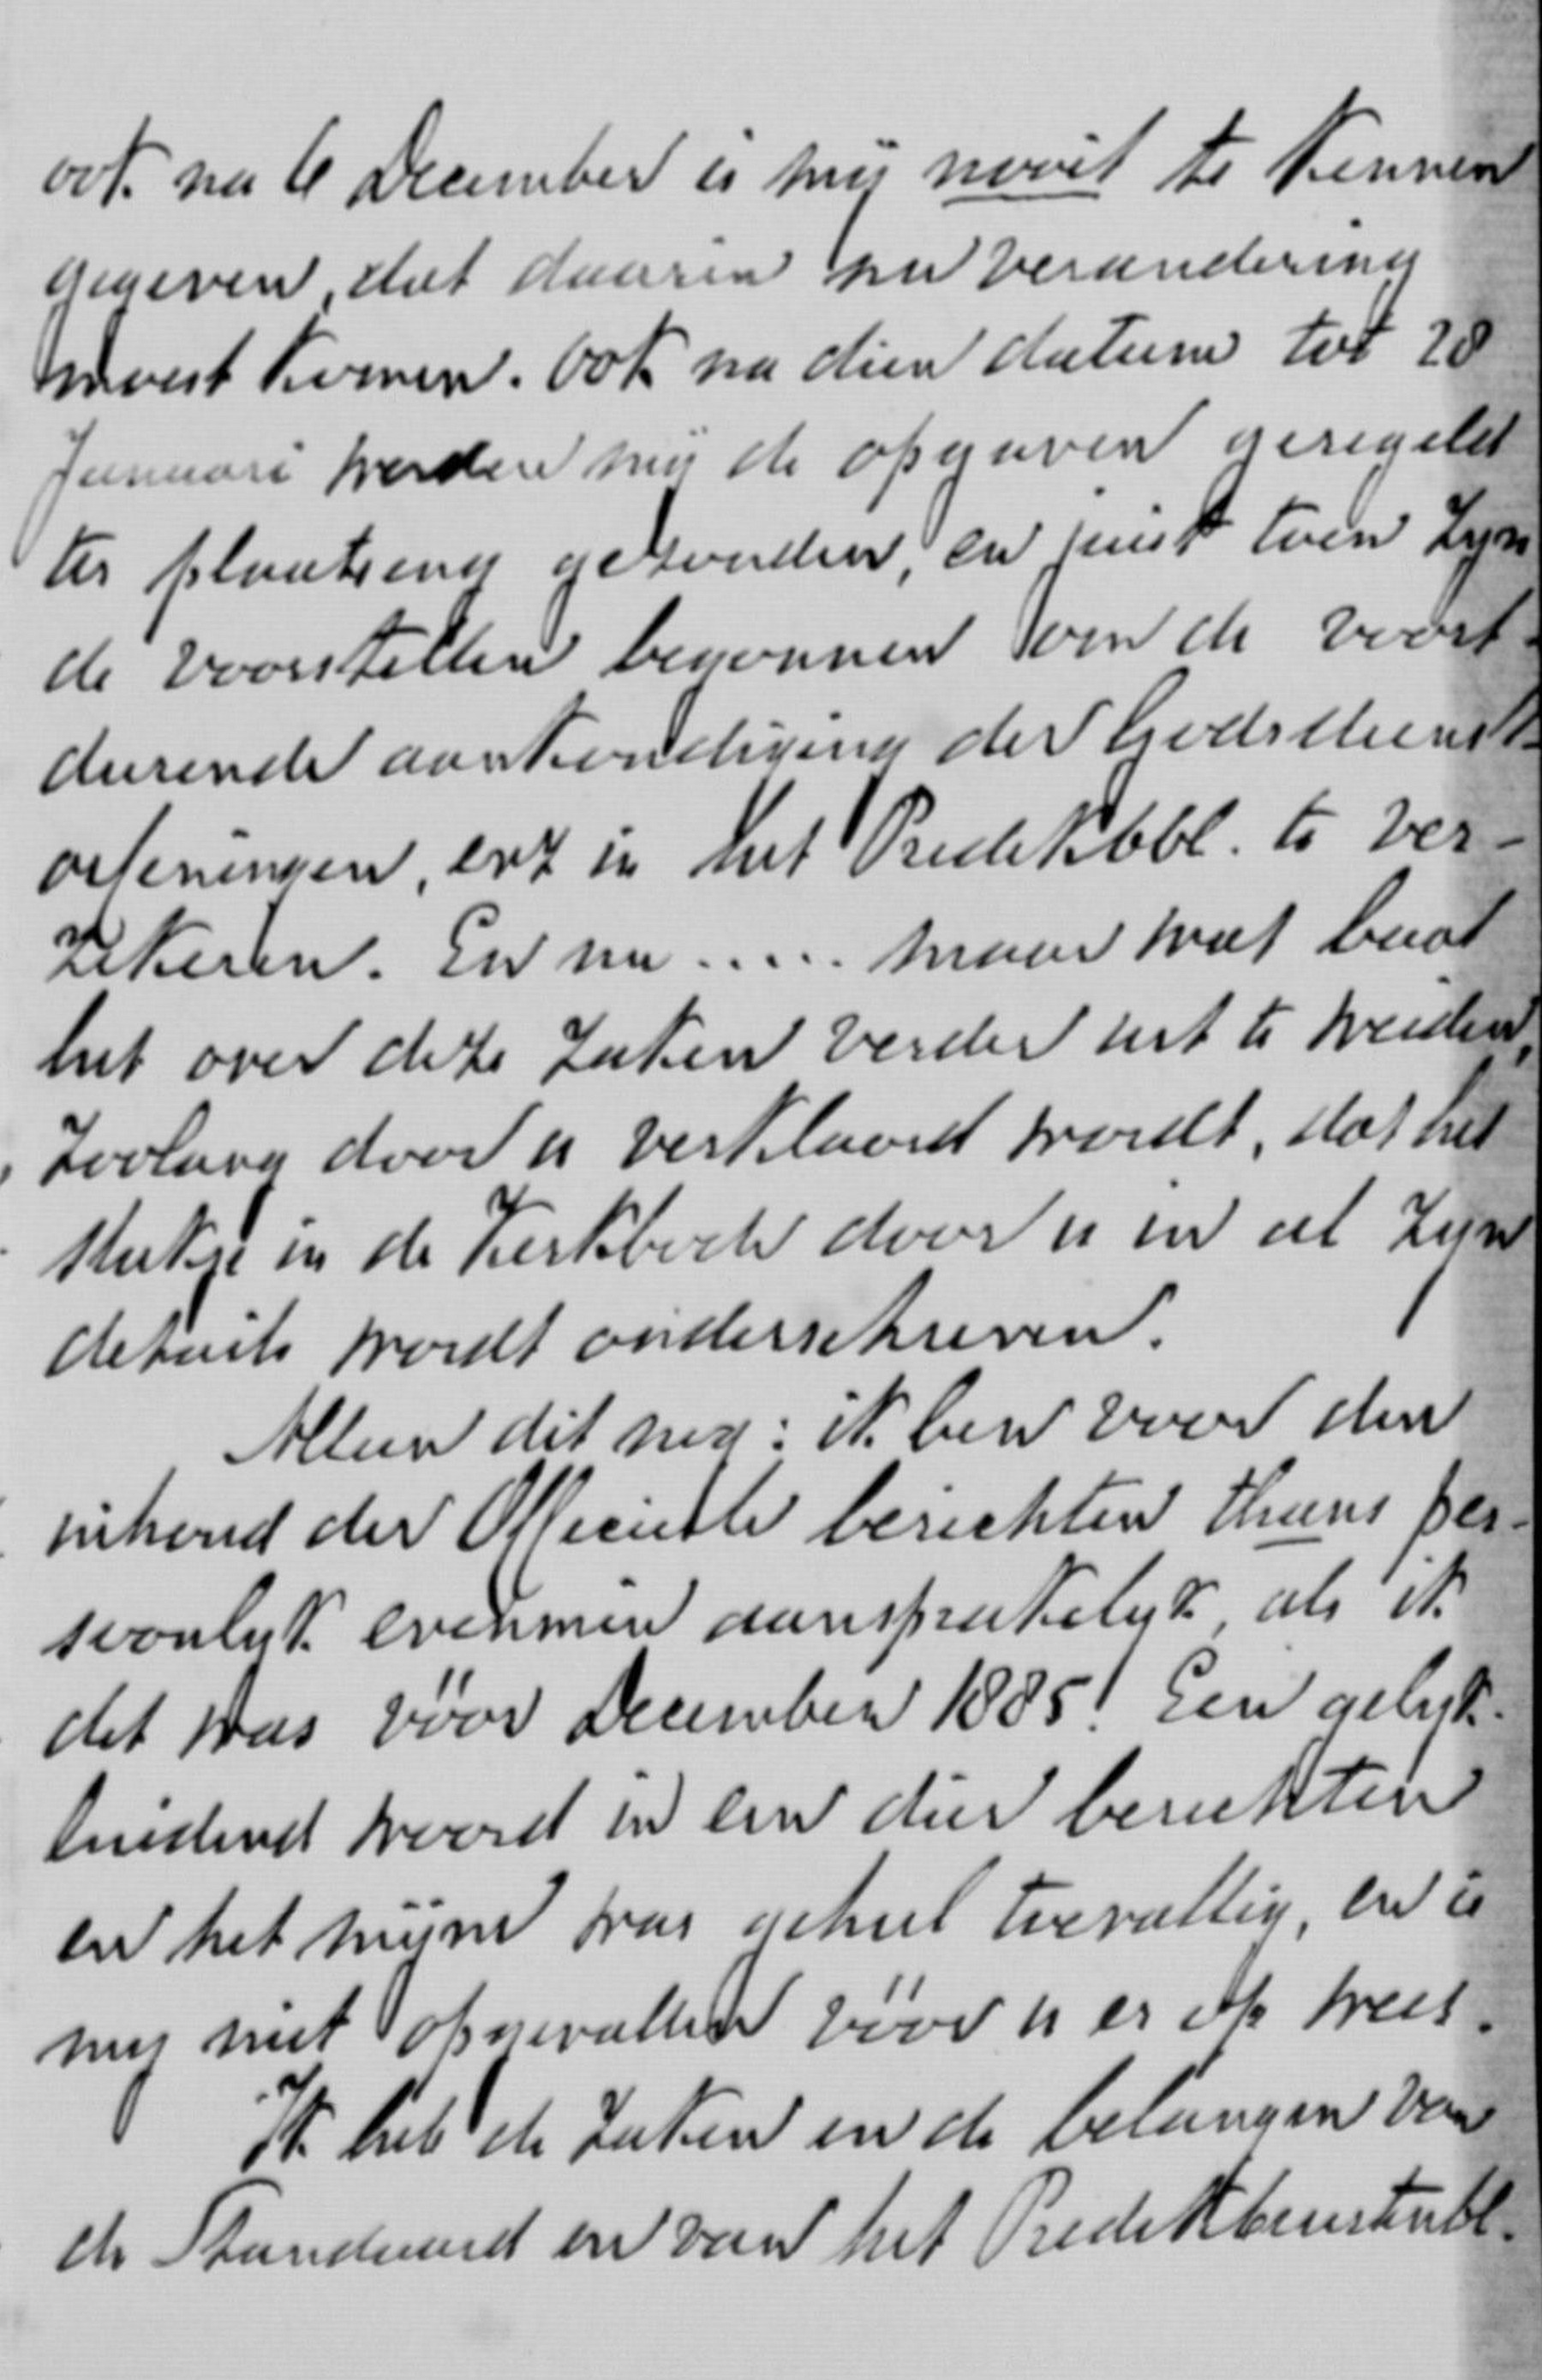 ook na 6 December is mij nooit te kennen
gegeven, dat daarin nu verandering
moest komen. Ook na dien datum tot 28
Januari werden mij de opgaven geregeld
ter plaatsing gezonden, en juist toen zyn
de voorstellen begonnen om de voort-
durende aankondiging der Godsdienst-
oefeningen, enz in het Predikbbl. te ver-
zekeren. En nu ..... maar wat baat
het over deze zaken verder uit te weiden,
zoolang door u verklaard wordt, dat het
stukje in de Kerkbode door u in al zyn
details wordt onderschreven.
Alleen dit nog: ik ben voor den
inhoud der Officieele berichten thans per-
soonlyk evenmin aansprakelyk, als ik
dat was vóór December 1885! Een gelyk-
luidend woord in een dier berichten
en het mijne was geheel toevallig, en is
my niet opgevallen vóór u er op wees.
Ik heb de zaken en de belangen van
de Standaard en van het Predikbeurtenbl.